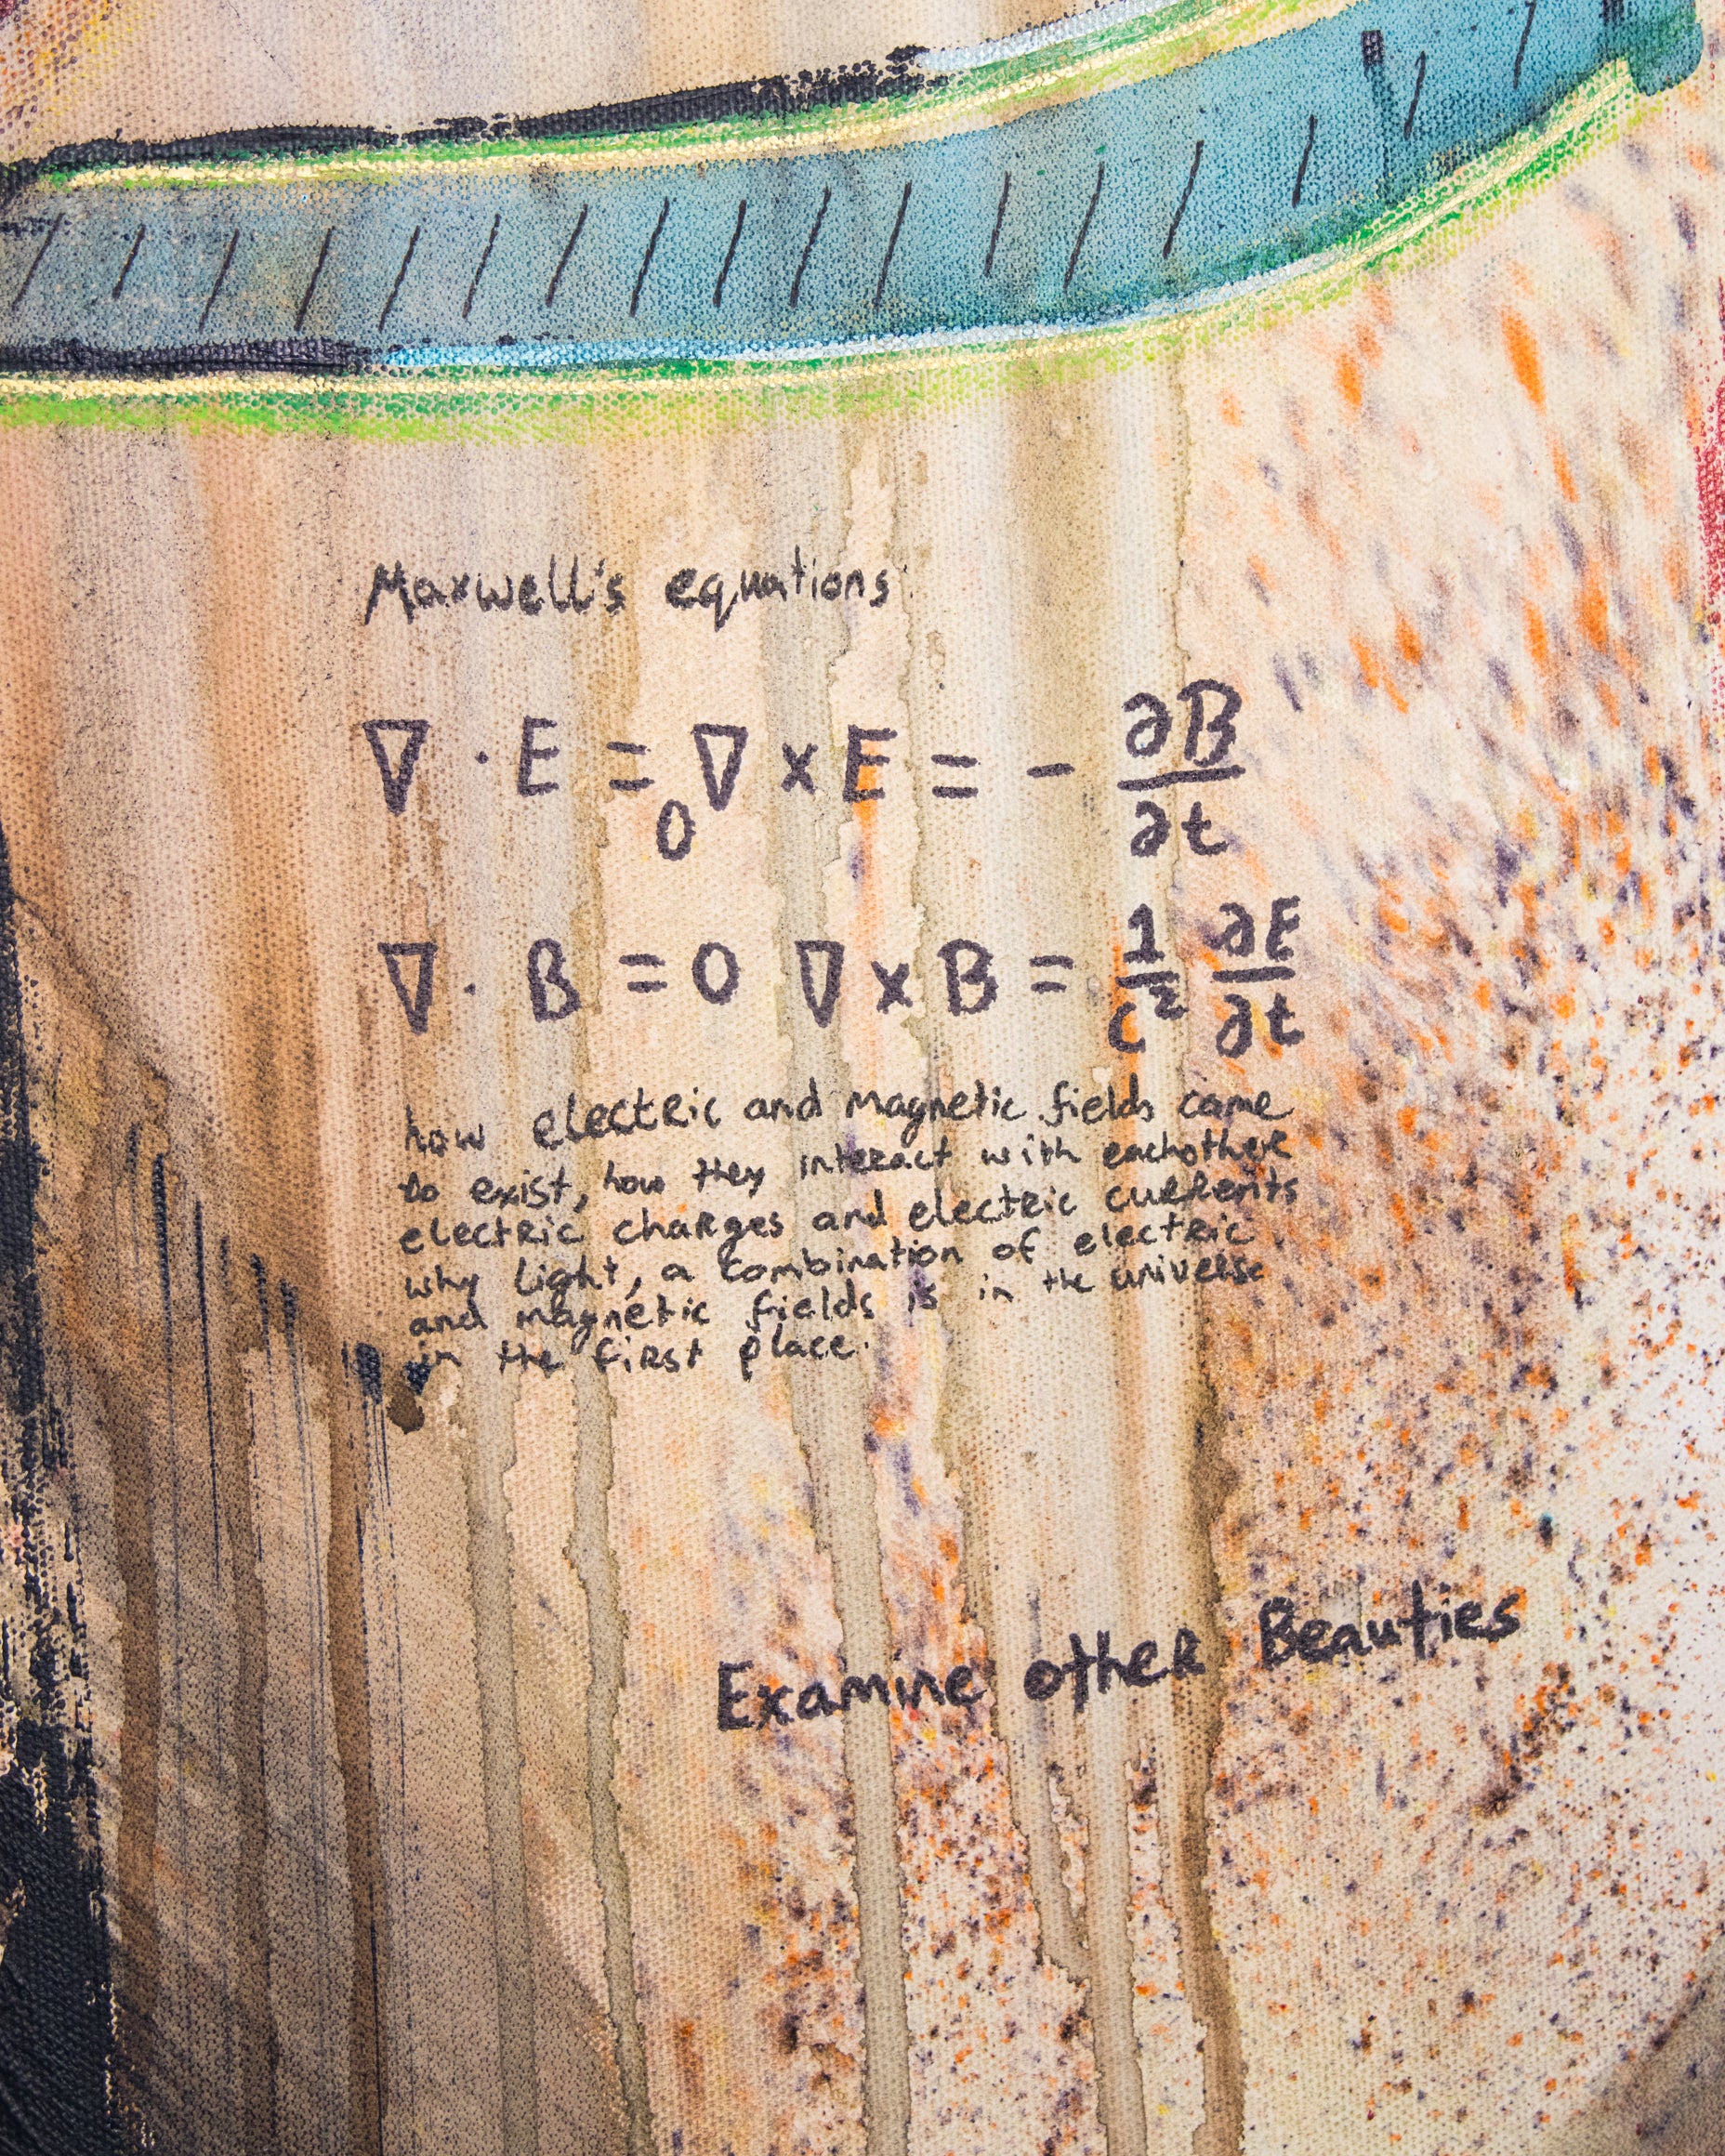 Maxwell's equations
∇ · E = 0 ∇ × E = - ∂B/∂t
∇ · B = 0 ∇ × B = 1/c² ∂E/∂t
how electric and magnetic fields came
to exist, how they interact with eachother
electric charges and electric currents
why light, a combination of electric
and magnetic fields is in the universe
in the first place.
Examine other Beauties